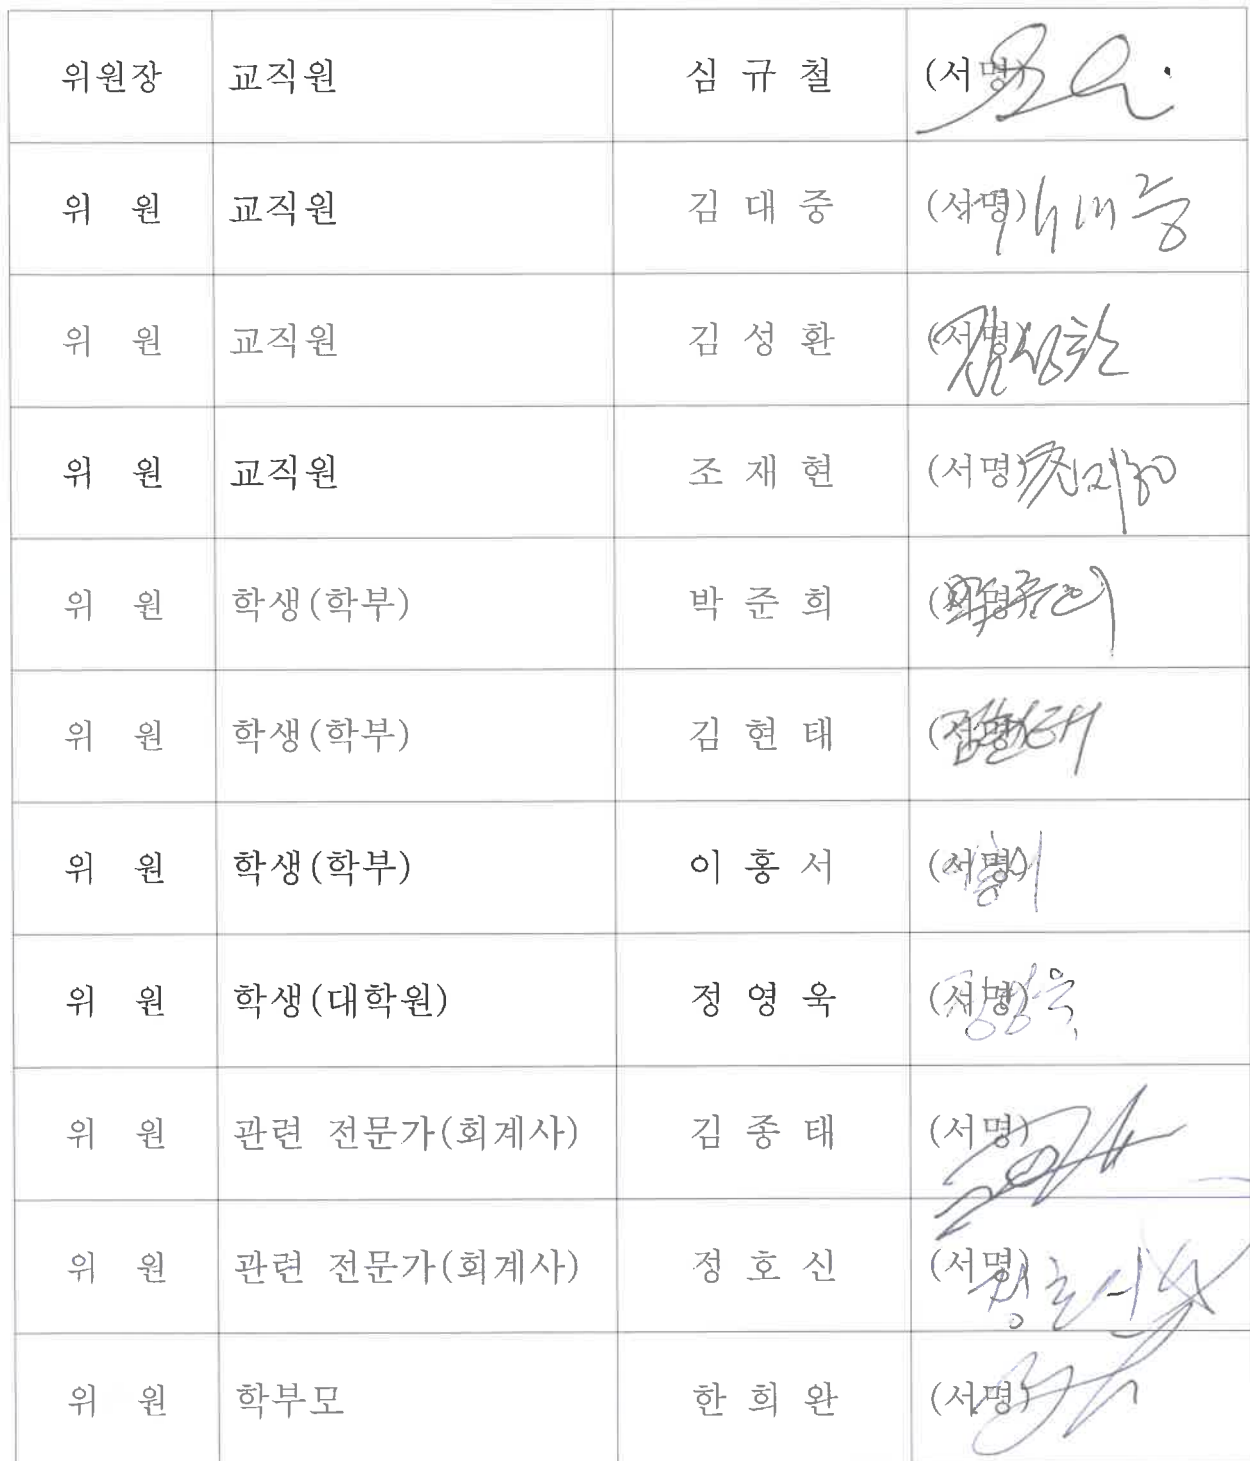 위원장 교직원 심 규 철 (서명)
위 원 교직원 김 대 중 (서명) 김대중
위 원 교직원 김 성 환 (서명) 김성환
위 원 교직원 조 재 현 (서명)
위 원 학생(학부) 박 준 희 (서명) 박준희
위 원 학생(학부) 김 현 태 (서명) 김현태
위 원 학생(학부) 이 홍 서 (서명)
위 원 학생(대학원) 정 영 욱 (서명) 정영욱
위 원 관련 전문가(회계사) 김 종 태 (서명)
위 원 관련 전문가(회계사) 정 호 신 (서명) 정호신
위 원 학부모 한 희 완 (서명)